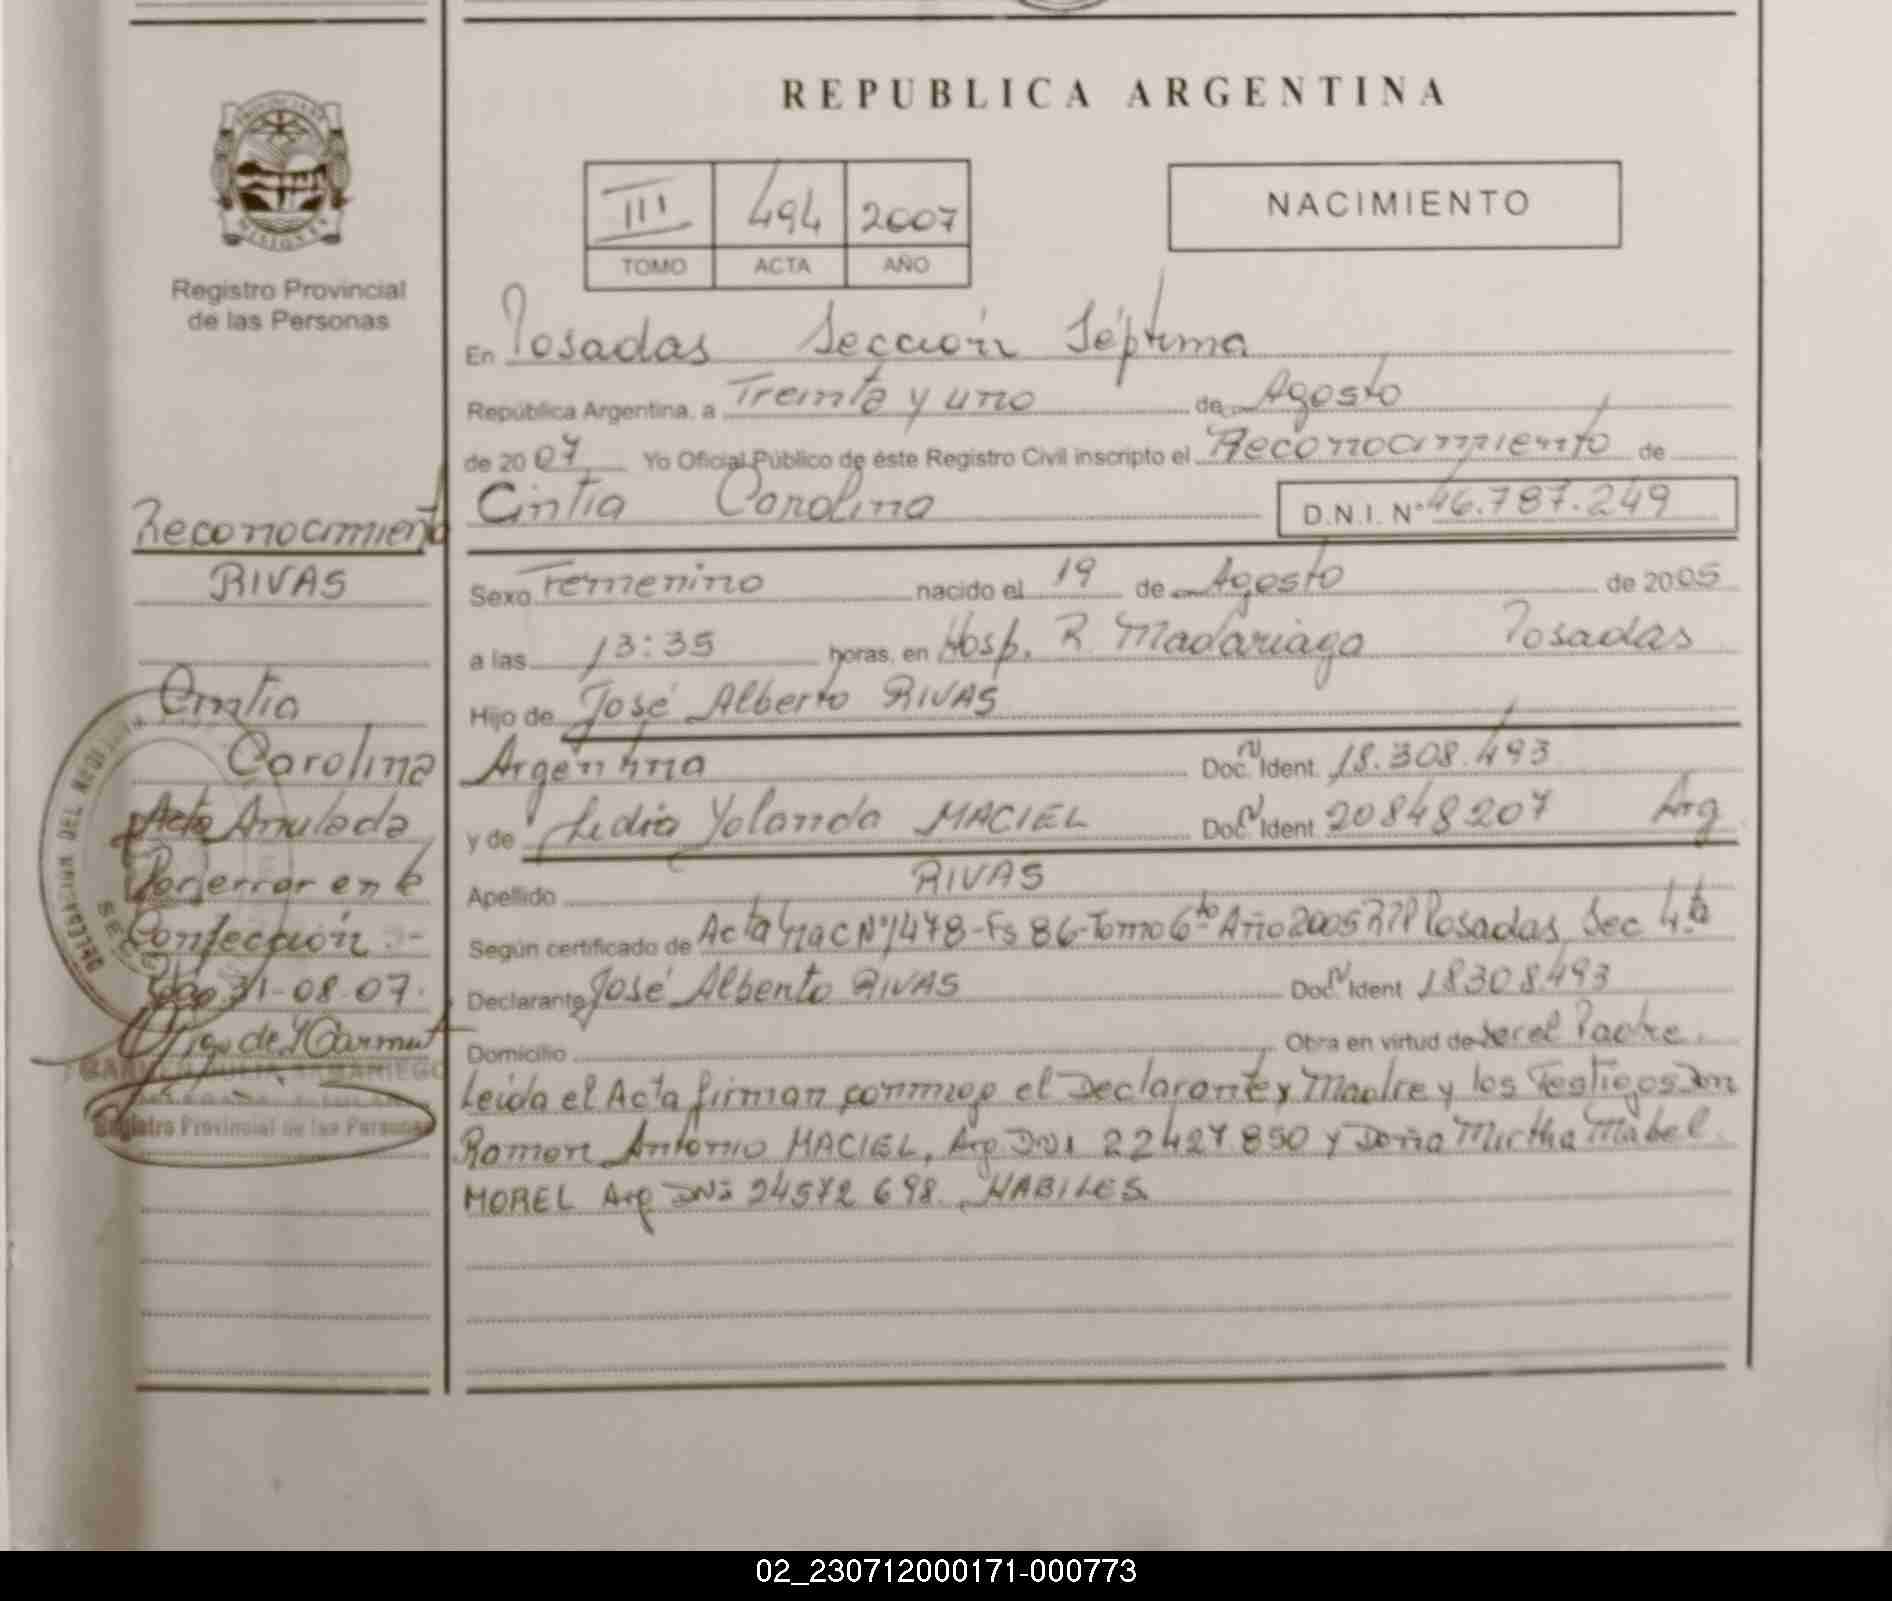 REPUBLICA ARGENTINA
PROVINCIA DE MISIONES
Registro Provincial
de las Personas
III 494 2007
TOMO ACTA AÑO
NACIMIENTO
En Posadas Sección Séptima
República Argentina, a Treinta y uno de Agosto
de 2007 Yo Oficial Público de éste Registro Civil inscripto el Reconocimiento de
Cintia Carolina D.N.I. Nº 46.787.249
Sexo Femenino nacido el 19 de Agosto de 2005
a las 13:35 horas, en Hosp. R Madariaga Posadas
Hijo de José Alberto RIVAS
Argentina Doc. Ident. 18.308.493
y de Lidia Yolanda MACIEL Doc. Ident. 20848207 Arg
Apellido RIVAS
Según certificado de Acta Nac Nº 1478-Fs 86-Tomo 6to Año 2005 RPP Posadas Sec 4ta
Declarante José Alberto RIVAS Doc. Ident 18308.493
Domicilio Obra en virtud de ser el Padre.
Leída el Acta firman conmigo el Declarante y Madre y los Testigos Don
Ramon Antonio MACIEL, Arg DNI 22427850 y Doña Mirtha Mabel
MOREL Arg DNI 24572698. HABILES
Reconocimiento
RIVAS
Cintia
Carolina
Acta Anulada
Por error en la
Confección.-
31-08-07.
Registro Provincial de las Personas
02_230712000171-000773